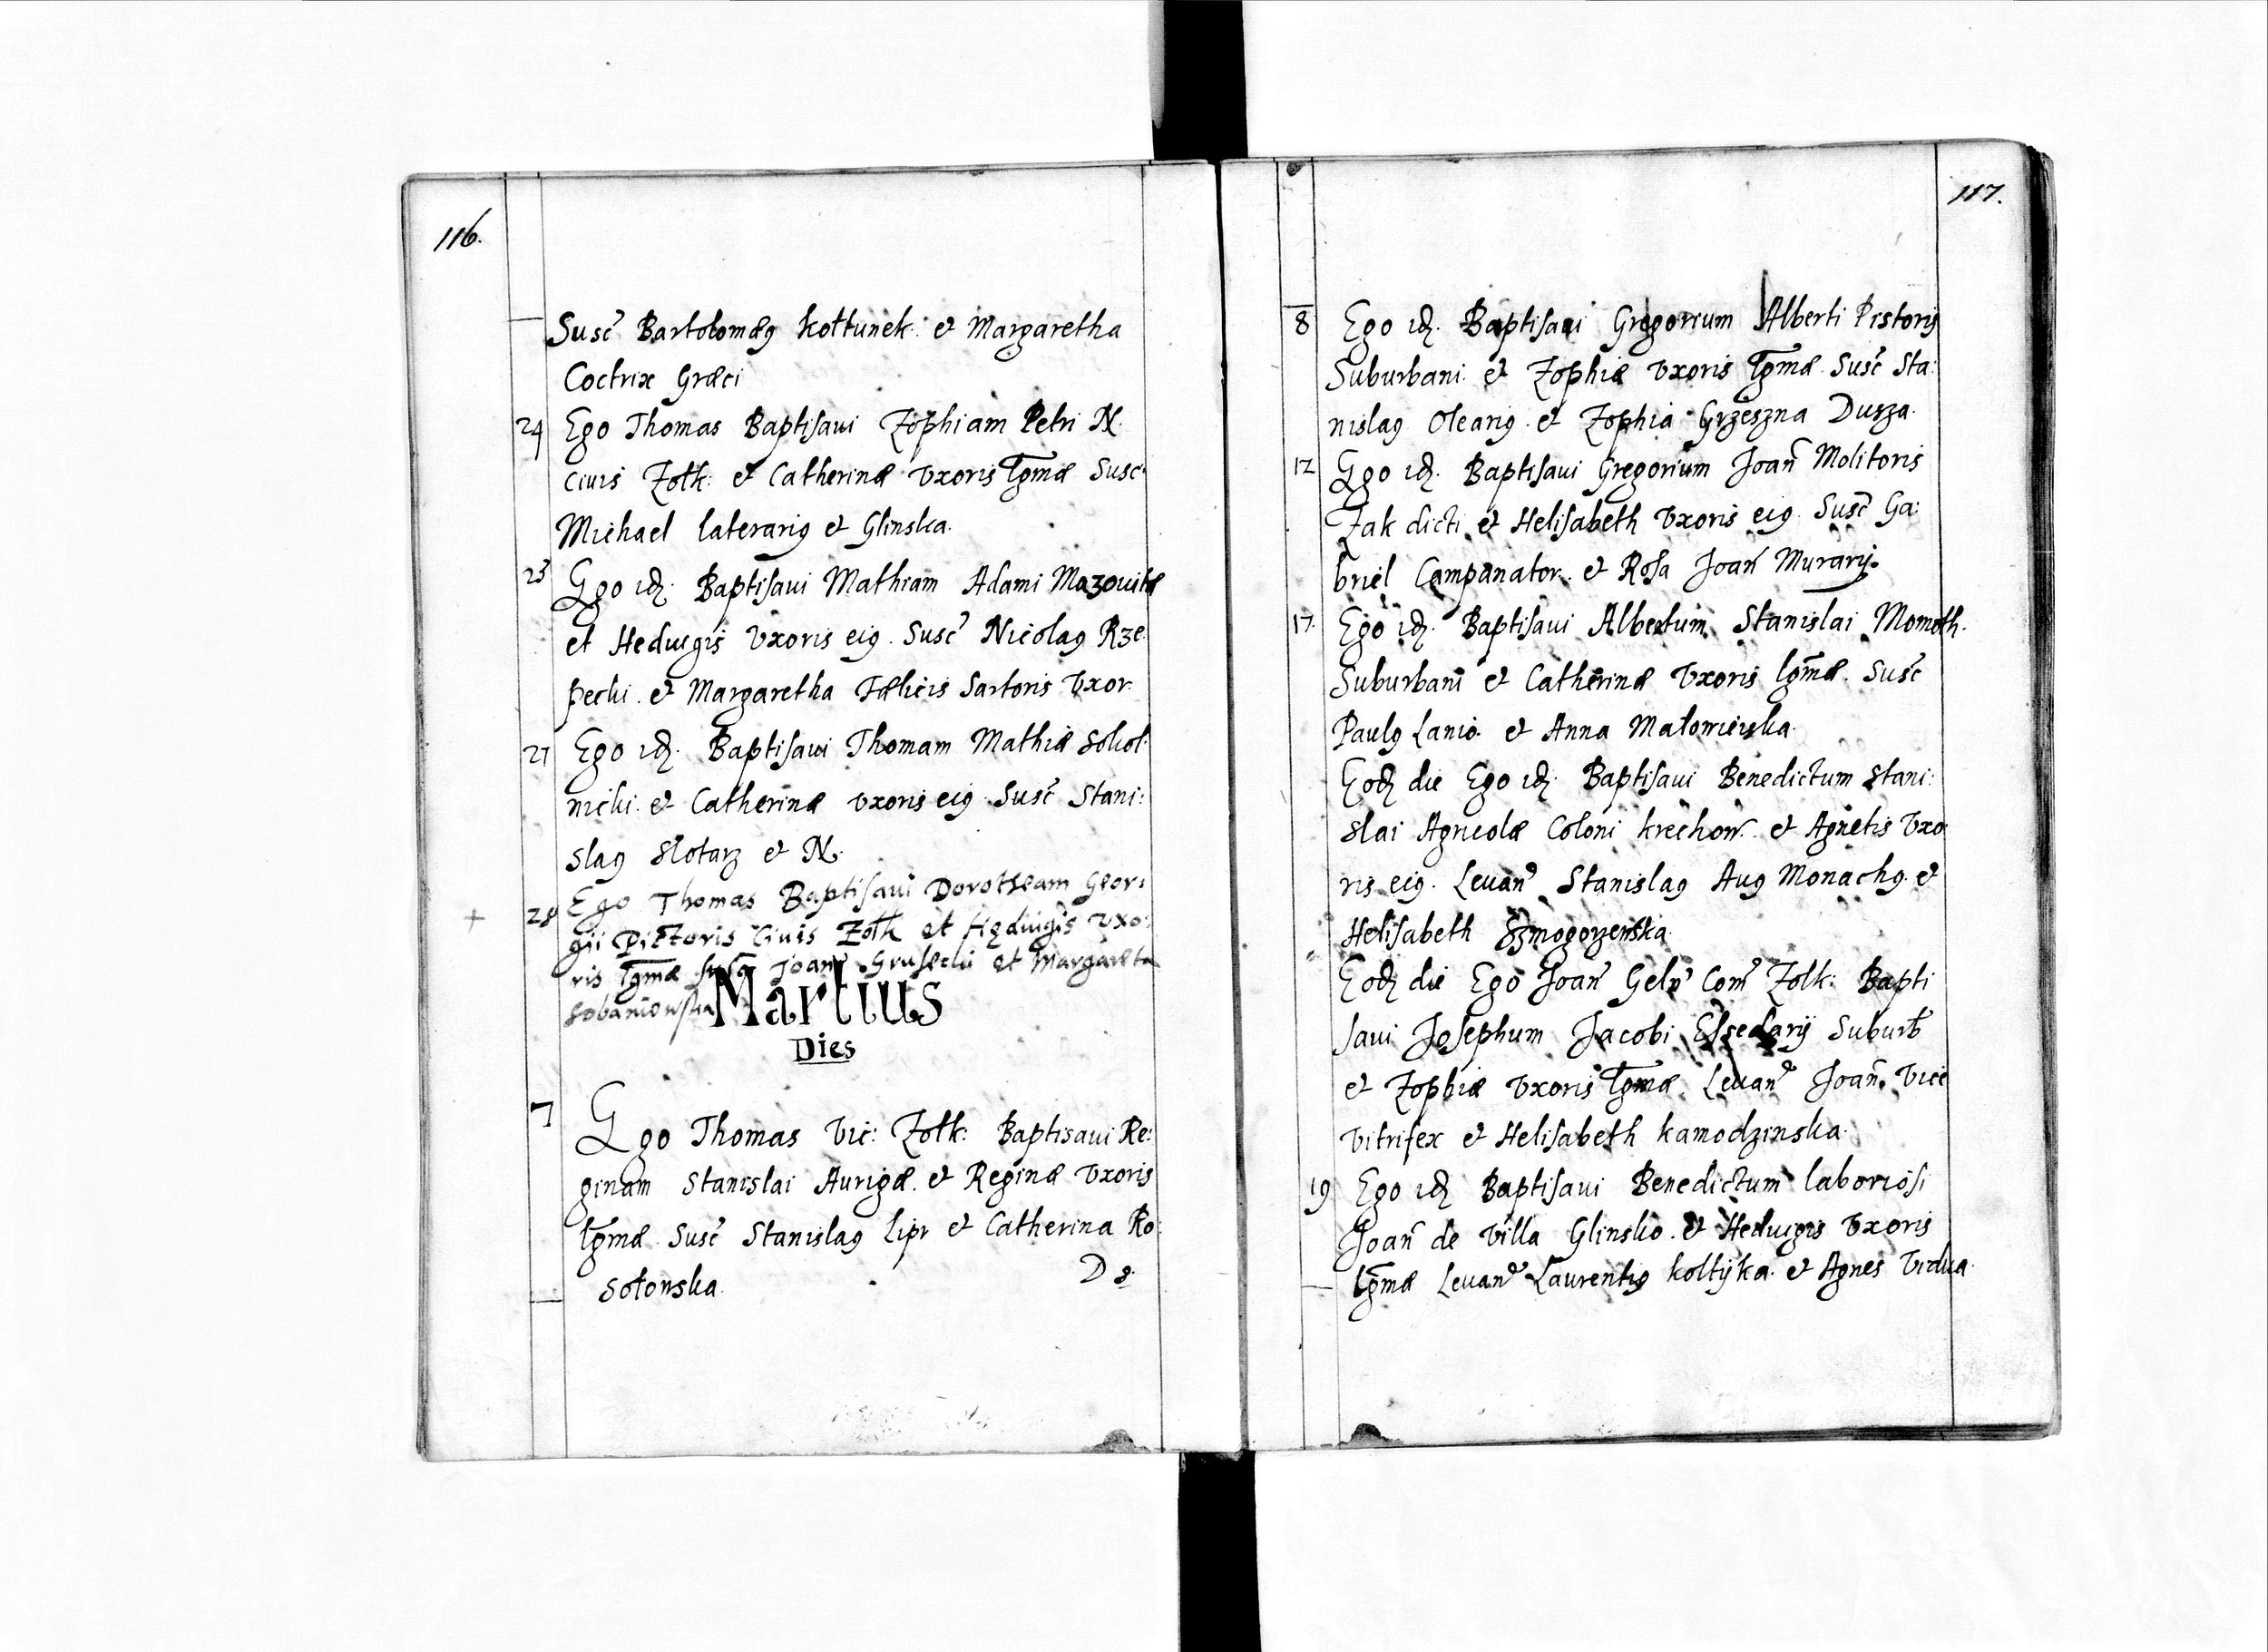 116.
Susc̃ Bartolomæꝰ Kołtunek. et Margaretha
Coctrix Græci
24 Ego Thomas Baptisaui Zophiam Petri N.
Ciuis Zołk: et Catherinæ Vxoris lgmæ Susc
Michael laterariꝰ et Glinska.
25 Ego idẽ. Baptisaui Mathiam Adami Mazouitæ
et Heduigis Vxoris eiꝰ. Susc̃ Nicolaꝰ Rze
pecki. et Margaretha Fælicis Sartoris Vxor.
27 Ego idẽ. Baptisaui Thomam Mathiæ Sokol
nicki. et Catherinæ Vxoris eiꝰ. Susc̃ Stani:
slaꝰ Slotarz et N.
+ 28 Ego Thomas Baptisaui Dorotheam Geor:
gii Pictoris Ciuis Zołk et Hęduigis Vxo:
ris lgmæ Joanꝰ Grusecki et Margareta
Sobaniowska
Martius
Dies
7 Ego Thomas Vic: Zołk: Baptisaui Re:
ginam Stanislai Aurigæ. et Reginæ Vxoris
lgmæ. Susc̃ Stanislaꝰ Lipr et Catherina Ro:
sołowska.
D 8.
117.
8 Ego idẽ. Baptisaui Gregorium Alberti Pistoris
Suburbani. et Zophiæ Vxoris lgmæ. Susc̃ Sta:
nislaꝰ Oleariꝰ. et Zophia Grzeszna Dusza.
12 Ego idẽ. Baptisaui Gregorium Joañ Molitoris
Zak dicti. et Helisabeth Vxoris eiꝰ. Susc̃ Ga:
briel Campanator. et Rosa Joañ Murarij.
17. Ego idẽ. Baptisaui Albertum Stanislai Momoth.
Suburbani et Catherinæ Vxoris lgmæ. Susc̃
Paulꝰ Lanio. et Anna Małowieyska.
Eodẽ die Ego idẽ. Baptisaui Benedictum Stani:
slai Agricolæ Coloni Krechow. et Agnetis Vxo
ris eiꝰ. Leuanᵈ Stanislaꝰ Auꝰ Monachꝰ. et
Helisabeth
Eodẽ die Ego Joañ Gelꝰ Com̃ Zolk: Bapti
saui Josephum Jacobi Essedarij Suburb̃
et Zophiæ Vxoris lgmæ. Leuanᵈ Joañ. Vice
Vitrifex et Helisabeth Kamodzinska.
19 Ego idẽ Baptisaui Benedictum laboriosi
Joañ de Villa Glinsko. et Heduigis Vxoris
lgmæ Leuanᵈ Laurentiꝰ Kołtyka. et Agnes Vidua